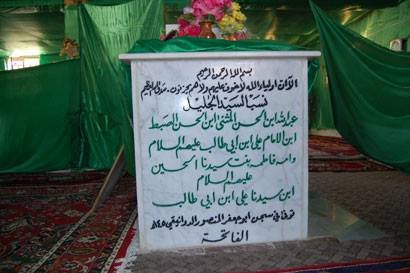 بسم الله الرحمن الرحيم
الا ان اولياء الله لا خوف عليهم ولا هم يحزنون. صدق الله العظيم
نسب السيد الجليل
عبد الله ابن الحسن المثنى ابن الحسن السبط
ابن الامام علي ابن ابي طالب عليهم السلام
وامه فاطمه بنت سيدنا الحسين
عليهم السلام
ابن سيدنا علي ابن ابي طالب
توفا في سجن ابو جعفر المنصور الدوانيقي ١٤٥ه
الفاتحة